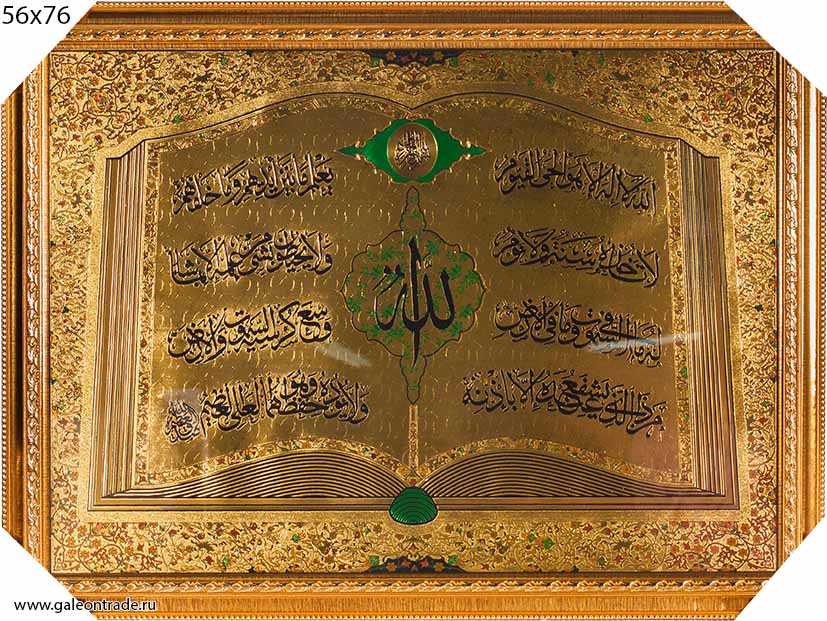 56x76
الله
الله لا إله إلا هو الحي القيوم
لا تأخذه سنة ولا نوم
له ما في السموات وما في الأرض
من ذا الذي يشفع عنده إلا بإذنه
يعلم ما بين أيديهم وما خلفهم
ولا يحيطون بشيء من علمه إلا بما شاء
وسع كرسيه السموات والأرض
ولا يئوده حفظهما وهو العلي العظيم
www.galeontrade.ru